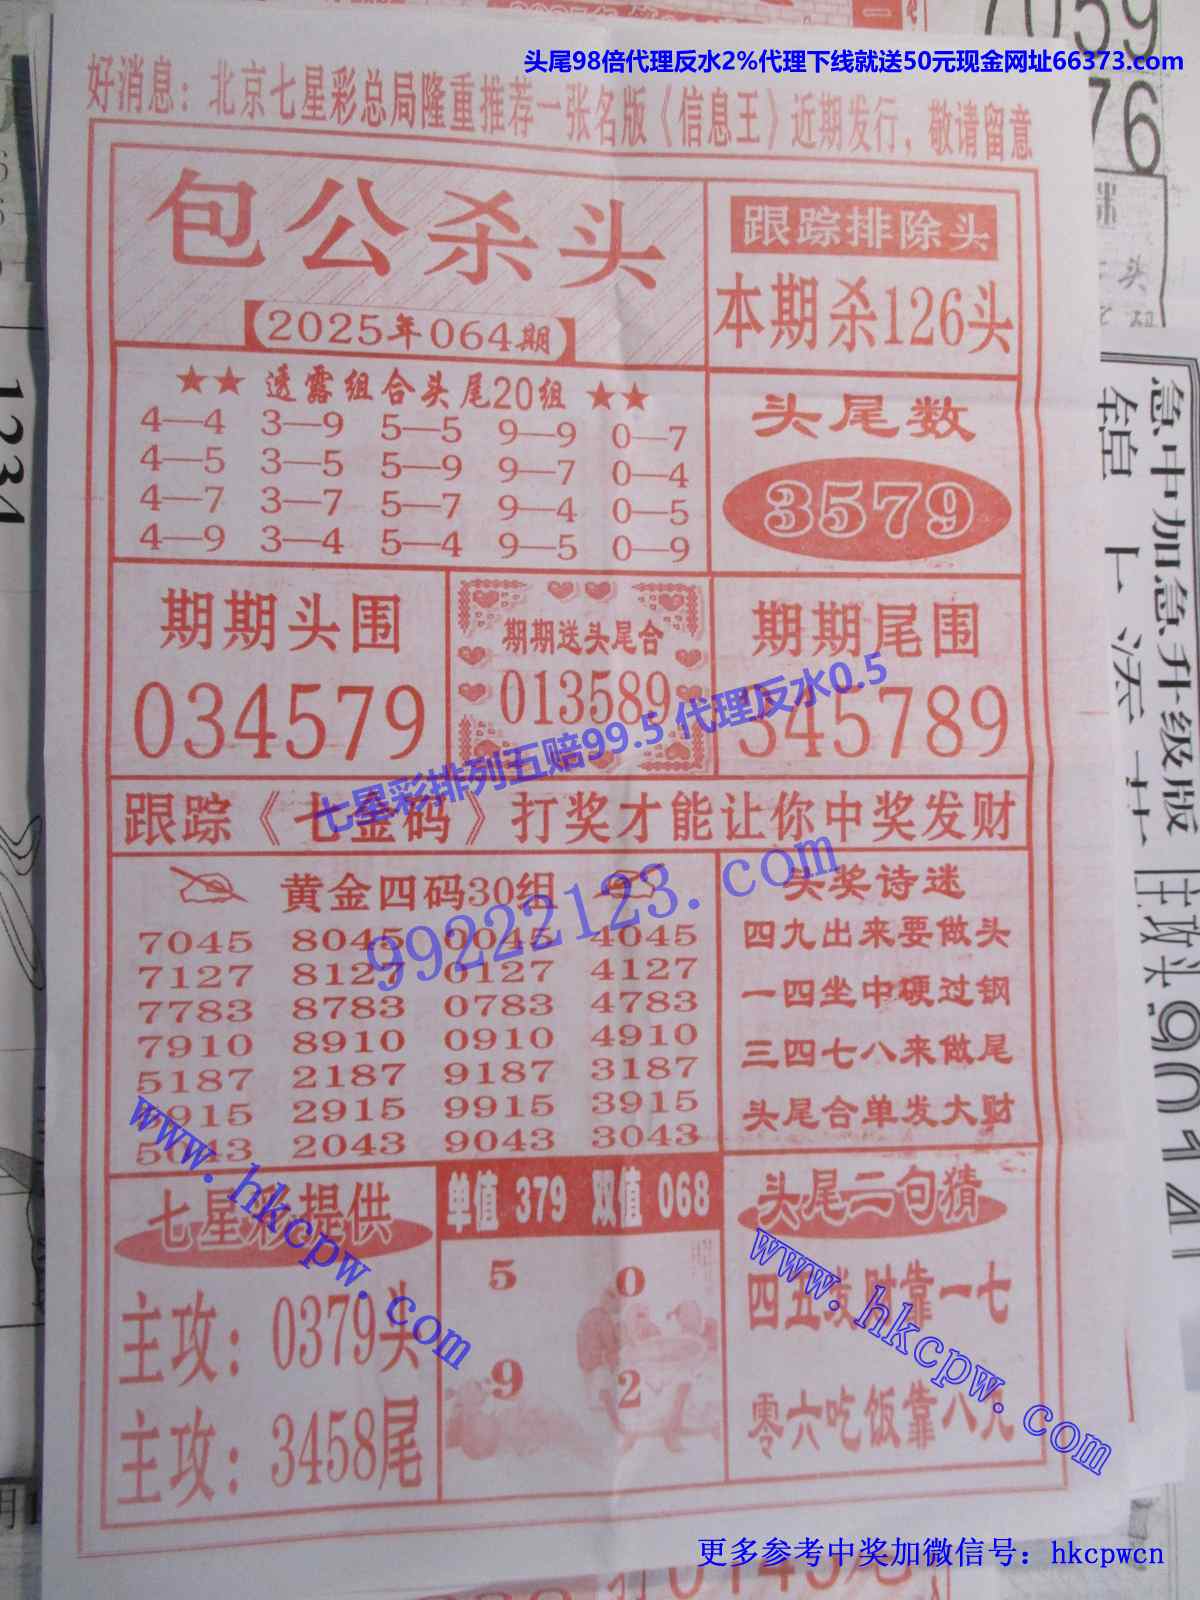 头尾98倍代理反水2%代理下线就送50元现金网址66373.com
好消息：北京七星彩总局隆重推荐一张名版《信息王》近期发行，敬请留意
包公杀头
【2025年064期】
跟踪排除头
本期杀126头
★★ 透露组合头尾20组 ★★
4—4 3—9 5—5 9—9 0—7
4—5 3—5 5—9 9—7 0—4
4—7 3—7 5—7 9—4 0—5
4—9 3—4 5—4 9—5 0—9
头尾数
3579
期期头围
034579
期期送头尾合
013589
期期尾围
345789
七星彩排列五赔99.5 代理反水0.5
跟踪《七金码》打奖才能让你中奖发财
99222123.com
黄金四码30组
7045 8045 0045 4045
7127 8127 0127 4127
7783 8783 0783 4783
7910 8910 0910 4910
5187 2187 9187 3187
5915 2915 9915 3915
5043 2043 9043 3043
头奖诗迷
四九出来要做头
一四坐中硬过钢
三四七八来做尾
头尾合单发大财
七星彩提供
主攻：0379头
主攻：3458尾
www.hkcpw.com
单值 379 双值 068
5 0
9 2
头尾二句猜
四五发财靠一七
零六吃饭靠八九
www.hkcpw.com
更多参考中奖加微信号：hkcpwcn
1234
急中加急升级版
主攻头